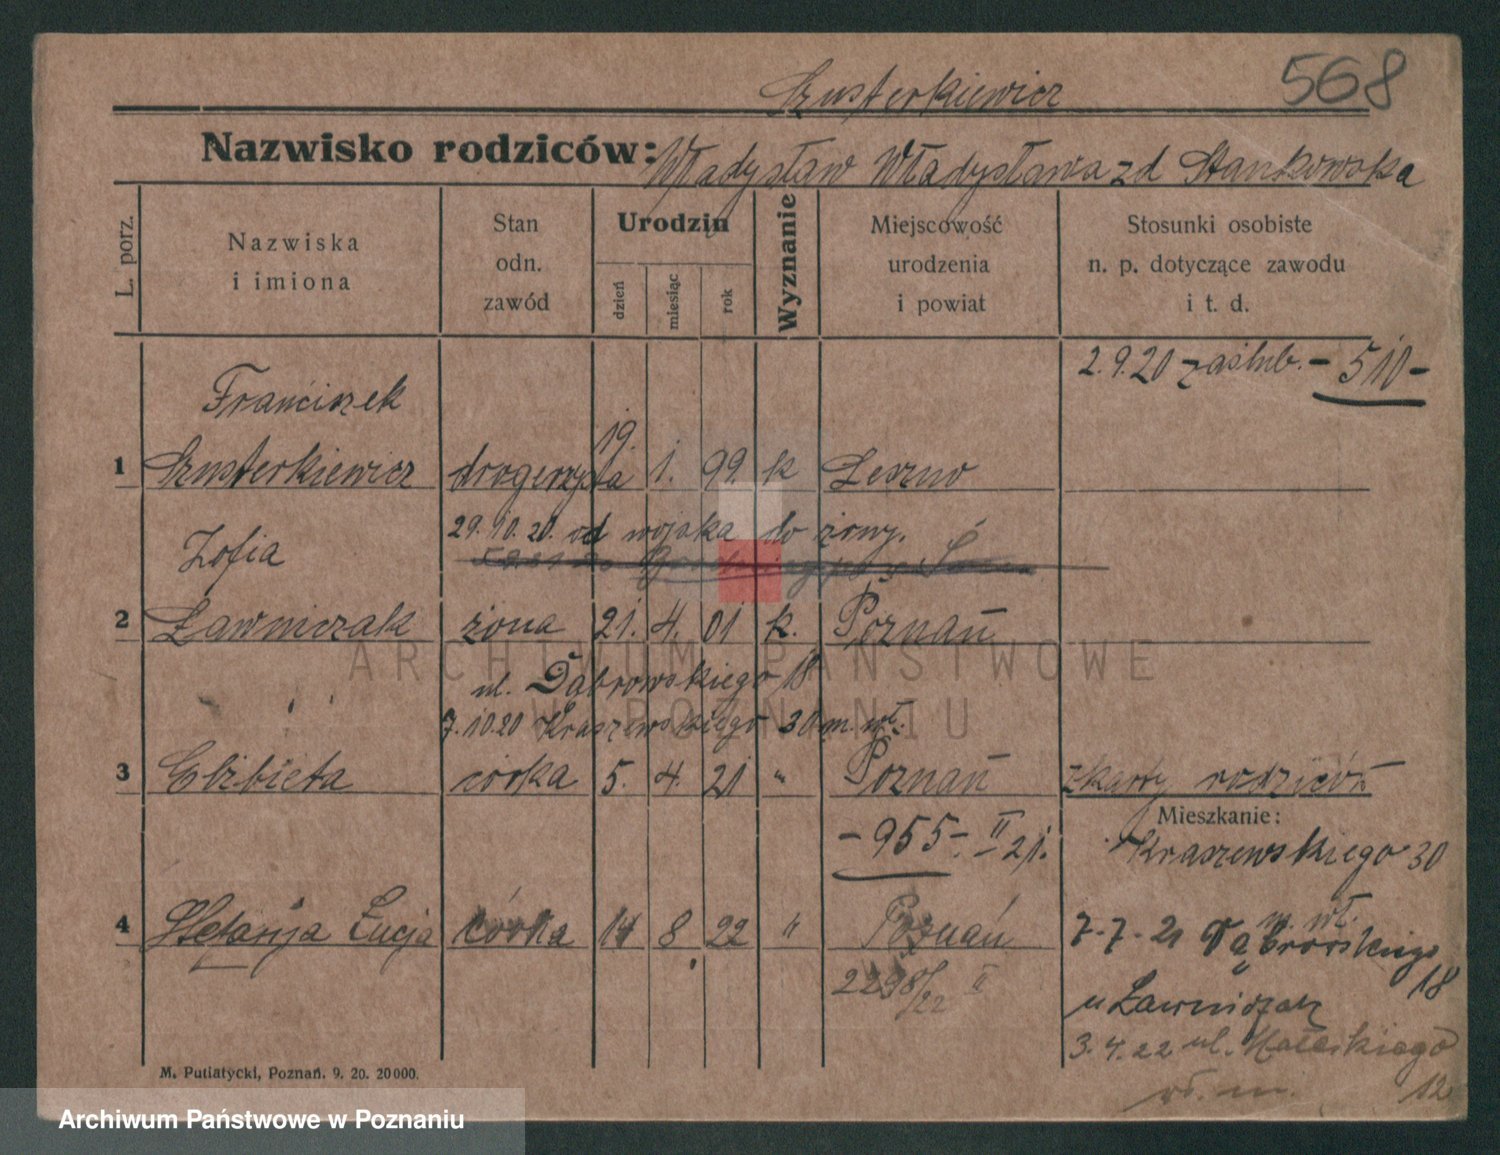 568
Szusterkiewicz
Nazwisko rodziców: Władysław Władysława zd Stankowska
L. porz.
Nazwiska i imiona
Stan odn. zawód
Urodzin
dzień
miesiąc
rok
Wyznanie
Miejscowość urodzenia i powiat
Stosunki osobiste n. p. dotyczące zawodu i t. d.
2.9.20 zaślub. - 510 -
Franciszek
1 Szusterkiewicz drogerzysta 19. 1. 99. k Leszno
29.10.20. od wojska do żony.
Zofia
2 Ławniczak żona 21. 4. 01 k. Poznań
ul. Dąbrowskiego 18
7.10.20 Kraszewskiego 30 m. wł.
3 Elżbieta córka 5. 4. 21 " Poznań z karty rodziców
Mieszkanie:
- 955 - II 21. Kraszewskiego 30
m. wł.
4 Stefanja Łucja córka 14 8 22 " Poznań 7-7-21 Dąbrowskiego 18
2298/22 II u Ławniczak
3.4.22 ul.
12
M. Putiatycki, Poznań. 9. 20. 20000.
ARCHIWUM PAŃSTWOWE
W POZNANIU
Archiwum Państwowe w Poznaniu